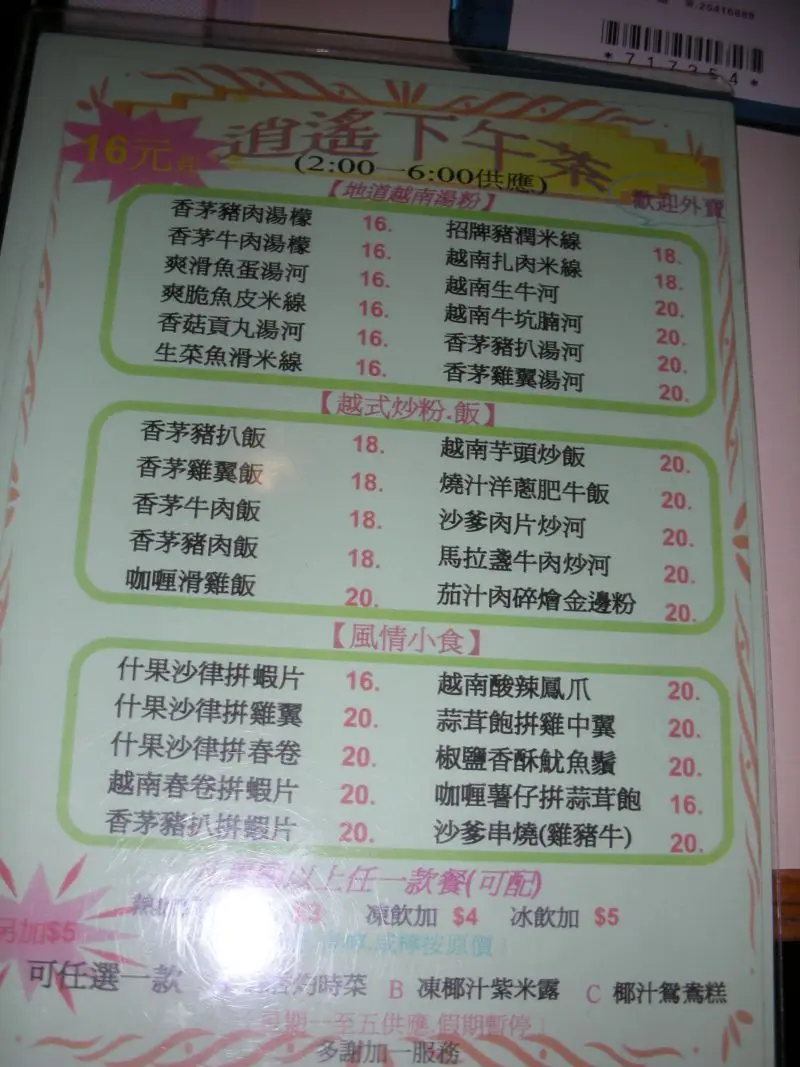 25416888
*717254*
16元起
逍遙下午茶
(2:00—6:00供應)
歡迎外賣
【地道越南湯粉】
香茅豬肉湯檬 16. 招牌豬潤米線 18.
香茅牛肉湯檬 16. 越南扎肉米線 18.
爽滑魚蛋湯河 16. 越南生牛河 20.
爽脆魚皮米線 16. 越南牛坑腩河 20.
香菇貢丸湯河 16. 香茅豬扒湯河 20.
生菜魚滑米線 16. 香茅雞翼湯河 20.
【越式炒粉.飯】
香茅豬扒飯 18. 越南芋頭炒飯 20.
香茅雞翼飯 18. 燒汁洋蔥肥牛飯 20.
香茅牛肉飯 18. 沙爹肉片炒河 20.
香茅豬肉飯 18. 馬拉盞牛肉炒河 20.
咖喱滑雞飯 20. 茄汁肉碎燴金邊粉 20.
【風情小食】
什果沙律拼蝦片 16. 越南酸辣鳳爪 20.
什果沙律拼雞翼 20. 蒜茸飽拼雞中翼 20.
什果沙律拼春卷 20. 椒鹽香酥魷魚鬚 20.
越南春卷拼蝦片 20. 咖喱薯仔拼蒜茸飽 16.
香茅豬扒拼蝦片 20. 沙爹串燒(雞豬牛) 20.
以上任一款餐(可配)
$3 凍飲加 $4 冰飲加 $5
另加$5
或檸按原價
可任選一款 時菜 B 凍椰汁紫米露 C 椰汁鴛鴦糕
星期一至五供應,假期暫停
多謝加一服務